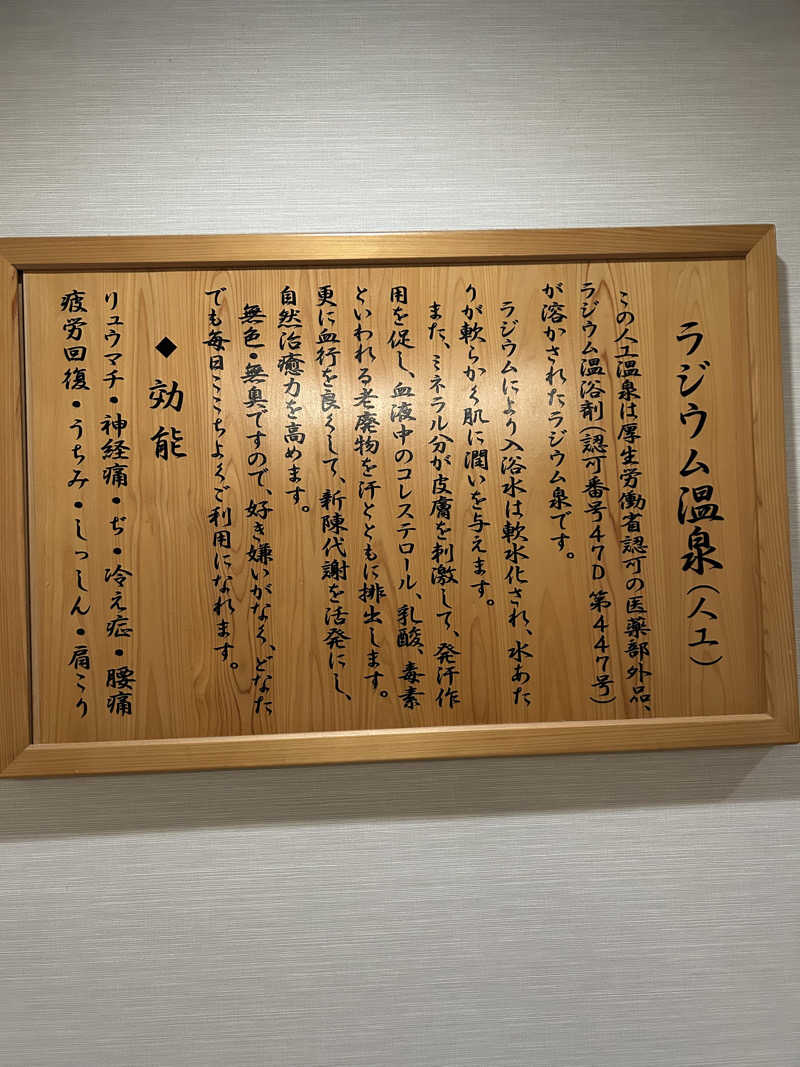 ラジウム温泉(人工)
この人工温泉は厚生労働省認可の医薬部外品、
ラジウム温浴剤(認可番号47D 第447号)
が溶かされたラジウム泉です。
ラジウムにより入浴水は軟水化され、水あた
りが軟らかく肌に潤いを与えます。
また、ミネラル分が皮膚を刺激して、発汗作
用を促し、血液中のコレステロール、乳酸、毒素
といわれる老廃物を汗とともに排出します。
更に血行を良くして、新陳代謝を活発にし、
自然治癒力を高めます。
無色・無臭ですので、好き嫌いがなく、どなた
でも毎日ここちよくご利用になれます。
◆効能
リュウマチ・神経痛・ぢ・冷え症・腰痛
疲労回復・うちみ・しっしん・肩こり